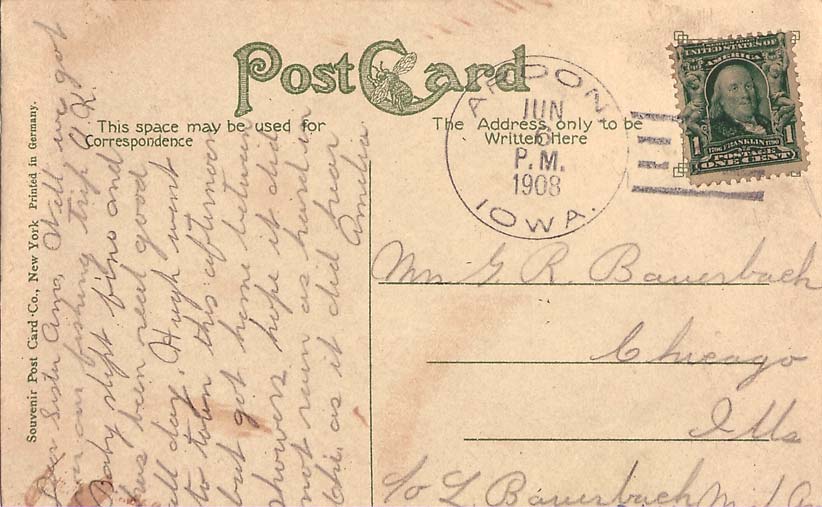 Post Card
This space may be used for
Correspondence
The Address only to be
Written Here
ARDON,
JUN
6
P.M.
1908
IOWA.
UNITED STATES OF
AMERICA
1706 FRANKLIN 1790
1 1
POSTAGE
ONE CENT
Souvenir Post Card Co., New York Printed in Germany.
Dear Sister Ana, Well, we got
over our fishing trip O.K.
Baby slept fine and
has been real good
all day. Hugh went
to town this afternoon
but got home between
showers, hope it did
not rain as hard in
Chi. as it did here
Amelia
Mrs G. R. Bauerbach
Chicago
Ills
c/o L. Bauerbach